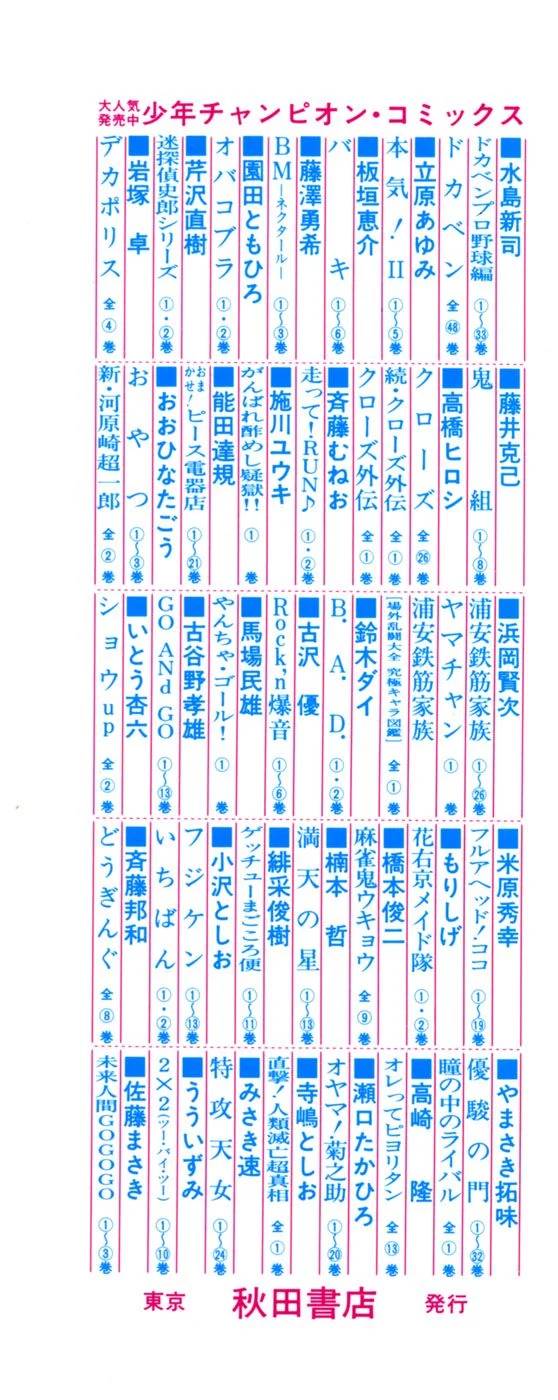 大人気
発売中
少年チャンピオン・コミックス
■水島新司
ドカベンプロ野球編 ①〜㉝巻
ドカベン 全㊽巻
■立原あゆみ
本気！Ⅱ ①〜⑤巻
■板垣恵介
バキ ①〜⑥巻
■藤澤勇希
BM―ネクタール― ①〜③巻
■園田ともひろ
オバコブラ ①・②巻
■芹沢直樹
迷探偵史郎シリーズ ①・②巻
■岩塚 卓
デカポリス 全④巻
■藤井克己
鬼組 ①〜⑧巻
■高橋ヒロシ
クローズ 全㉖巻
続・クローズ外伝 全①巻
クローズ外伝 全①巻
■斉藤むねお
走って！RUN♪ ①・②巻
■施川ユウキ
がんばれ酢めし疑獄!! ① 巻
■能田達規
おまかせ！ピース電器店 ①〜㉑巻
■おおひなたごう
おやつ ①〜③巻
新・河原崎超一郎 全②巻
■浜岡賢次
浦安鉄筋家族 ①〜㉖巻
ヤマチャン ① 巻
浦安鉄筋家族
［場外乱闘大全 究極キャラ図鑑］ 全①巻
■鈴木ダイ
B.A.D. ①・②巻
■古沢 優
Rock'n爆音 ①〜⑥巻
■馬場民雄
やんちゃ・ゴール！ ① 巻
■古谷野孝雄
GO ANd GO ①〜⑬巻
■いとう杏六
ショウup 全②巻
■米原秀幸
フルアヘッド！ココ ①〜⑲巻
■もりしげ
花右京メイド隊 ①・②巻
■橋本俊二
麻雀鬼ウキョウ 全⑨巻
■楠本 哲
満天の星 ①〜⑬巻
■緋采俊樹
ゲッチューまごころ便 ①〜⑪巻
■小沢としお
フジケン ①〜⑬巻
いちばん ①・②巻
■斉藤邦和
どうぎんぐ 全⑧巻
■やまさき拓味
優駿の門 ①〜㉜巻
瞳の中のライバル 全①巻
■高崎 隆
オレってピヨリタン 全⑬巻
■瀬口たかひろ
オヤマ！菊之助 ①〜⑳巻
■寺嶋としお
直撃！人類滅亡超真相 全①巻
■みさき速
特攻天女 ①〜㉔巻
■うういずみ
2×2(ツー・バイ・ツー) ①〜⑩巻
■佐藤まさき
未来人間GOGOGO ①〜③巻
東京 秋田書店 発行